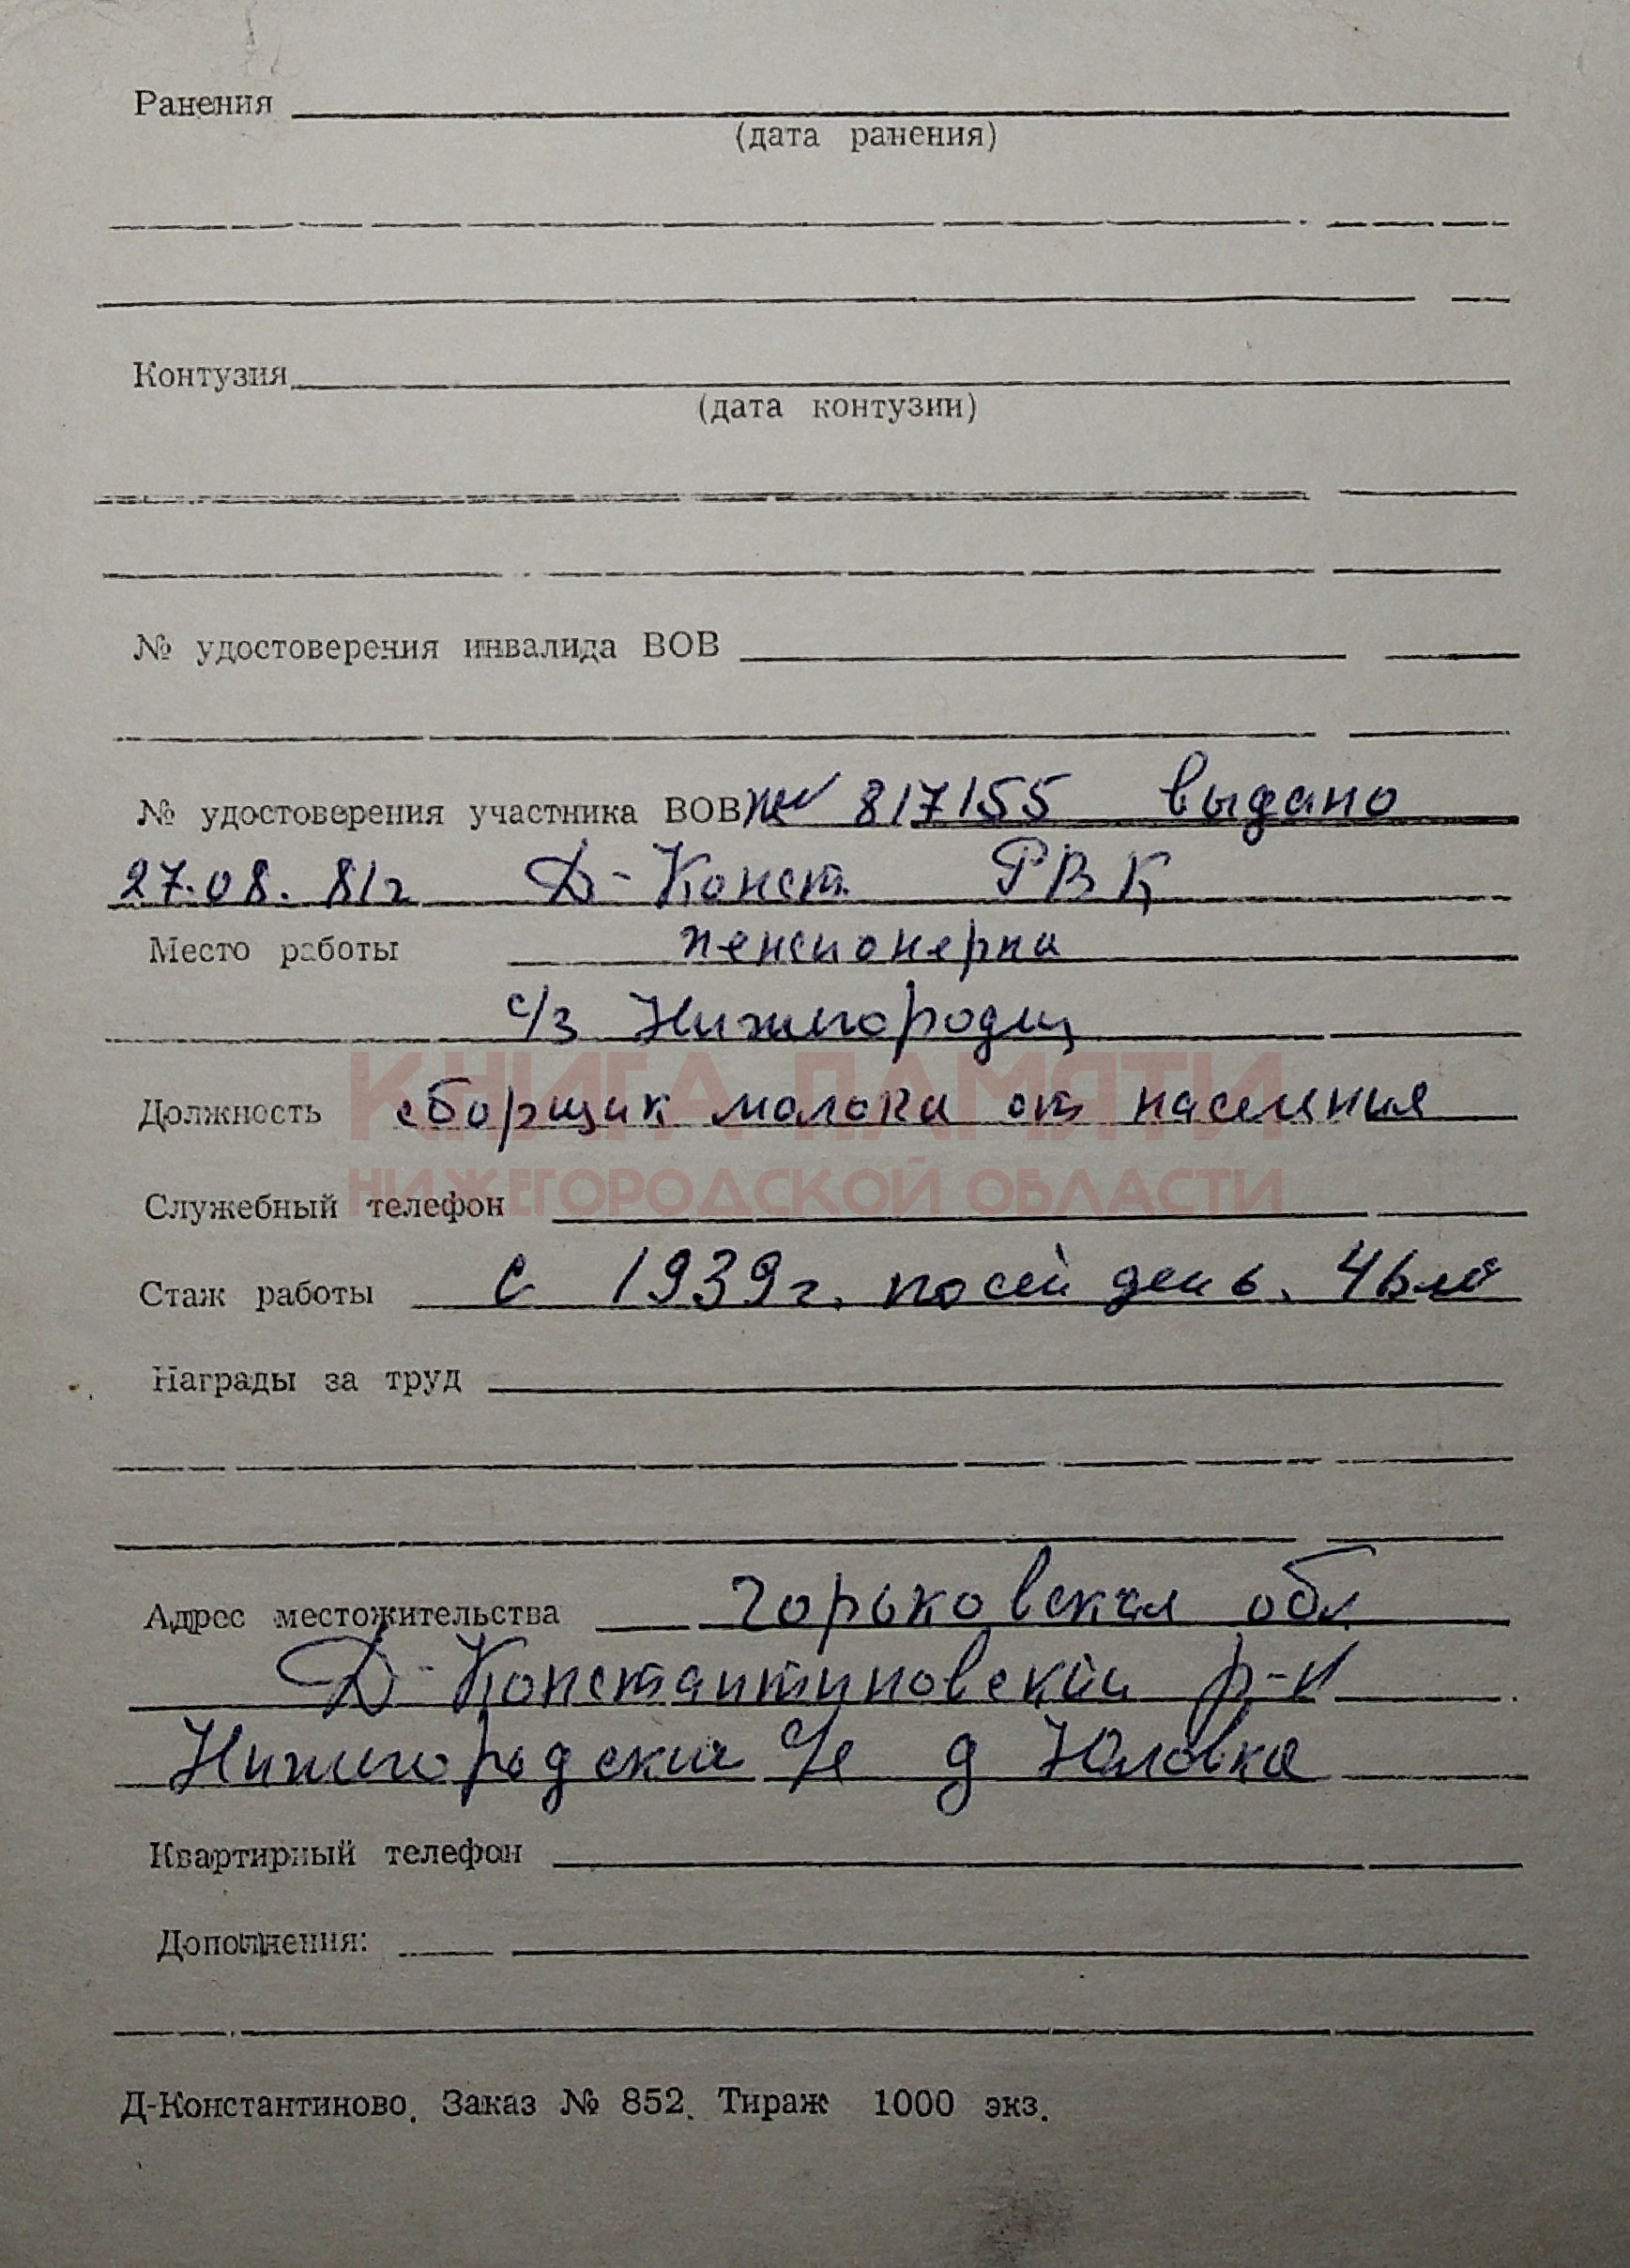 Ранения
(дата ранения)
Контузия
(дата контузии)
№ удостоверения инвалида ВОВ
№ удостоверения участника ВОВ № 817155 выдано
27.08.81г Д-Конст. РВК
Место работы пенсионерка
с/з Нижегородец
КНИГА ПАМЯТИ
Должность сборщик молока от населения
НИЖЕГОРОДСКОЙ ОБЛАСТИ
Служебный телефон
Стаж работы с 1939г. по сей день.
Награды за труд
Адрес местожительства Горьковская обл
Д-Константиновский р-н
Нижегородский с/с д Юловка
Квартирный телефон
Дополнения:
Д-Константиново. Заказ № 852. Тираж 1000 экз.